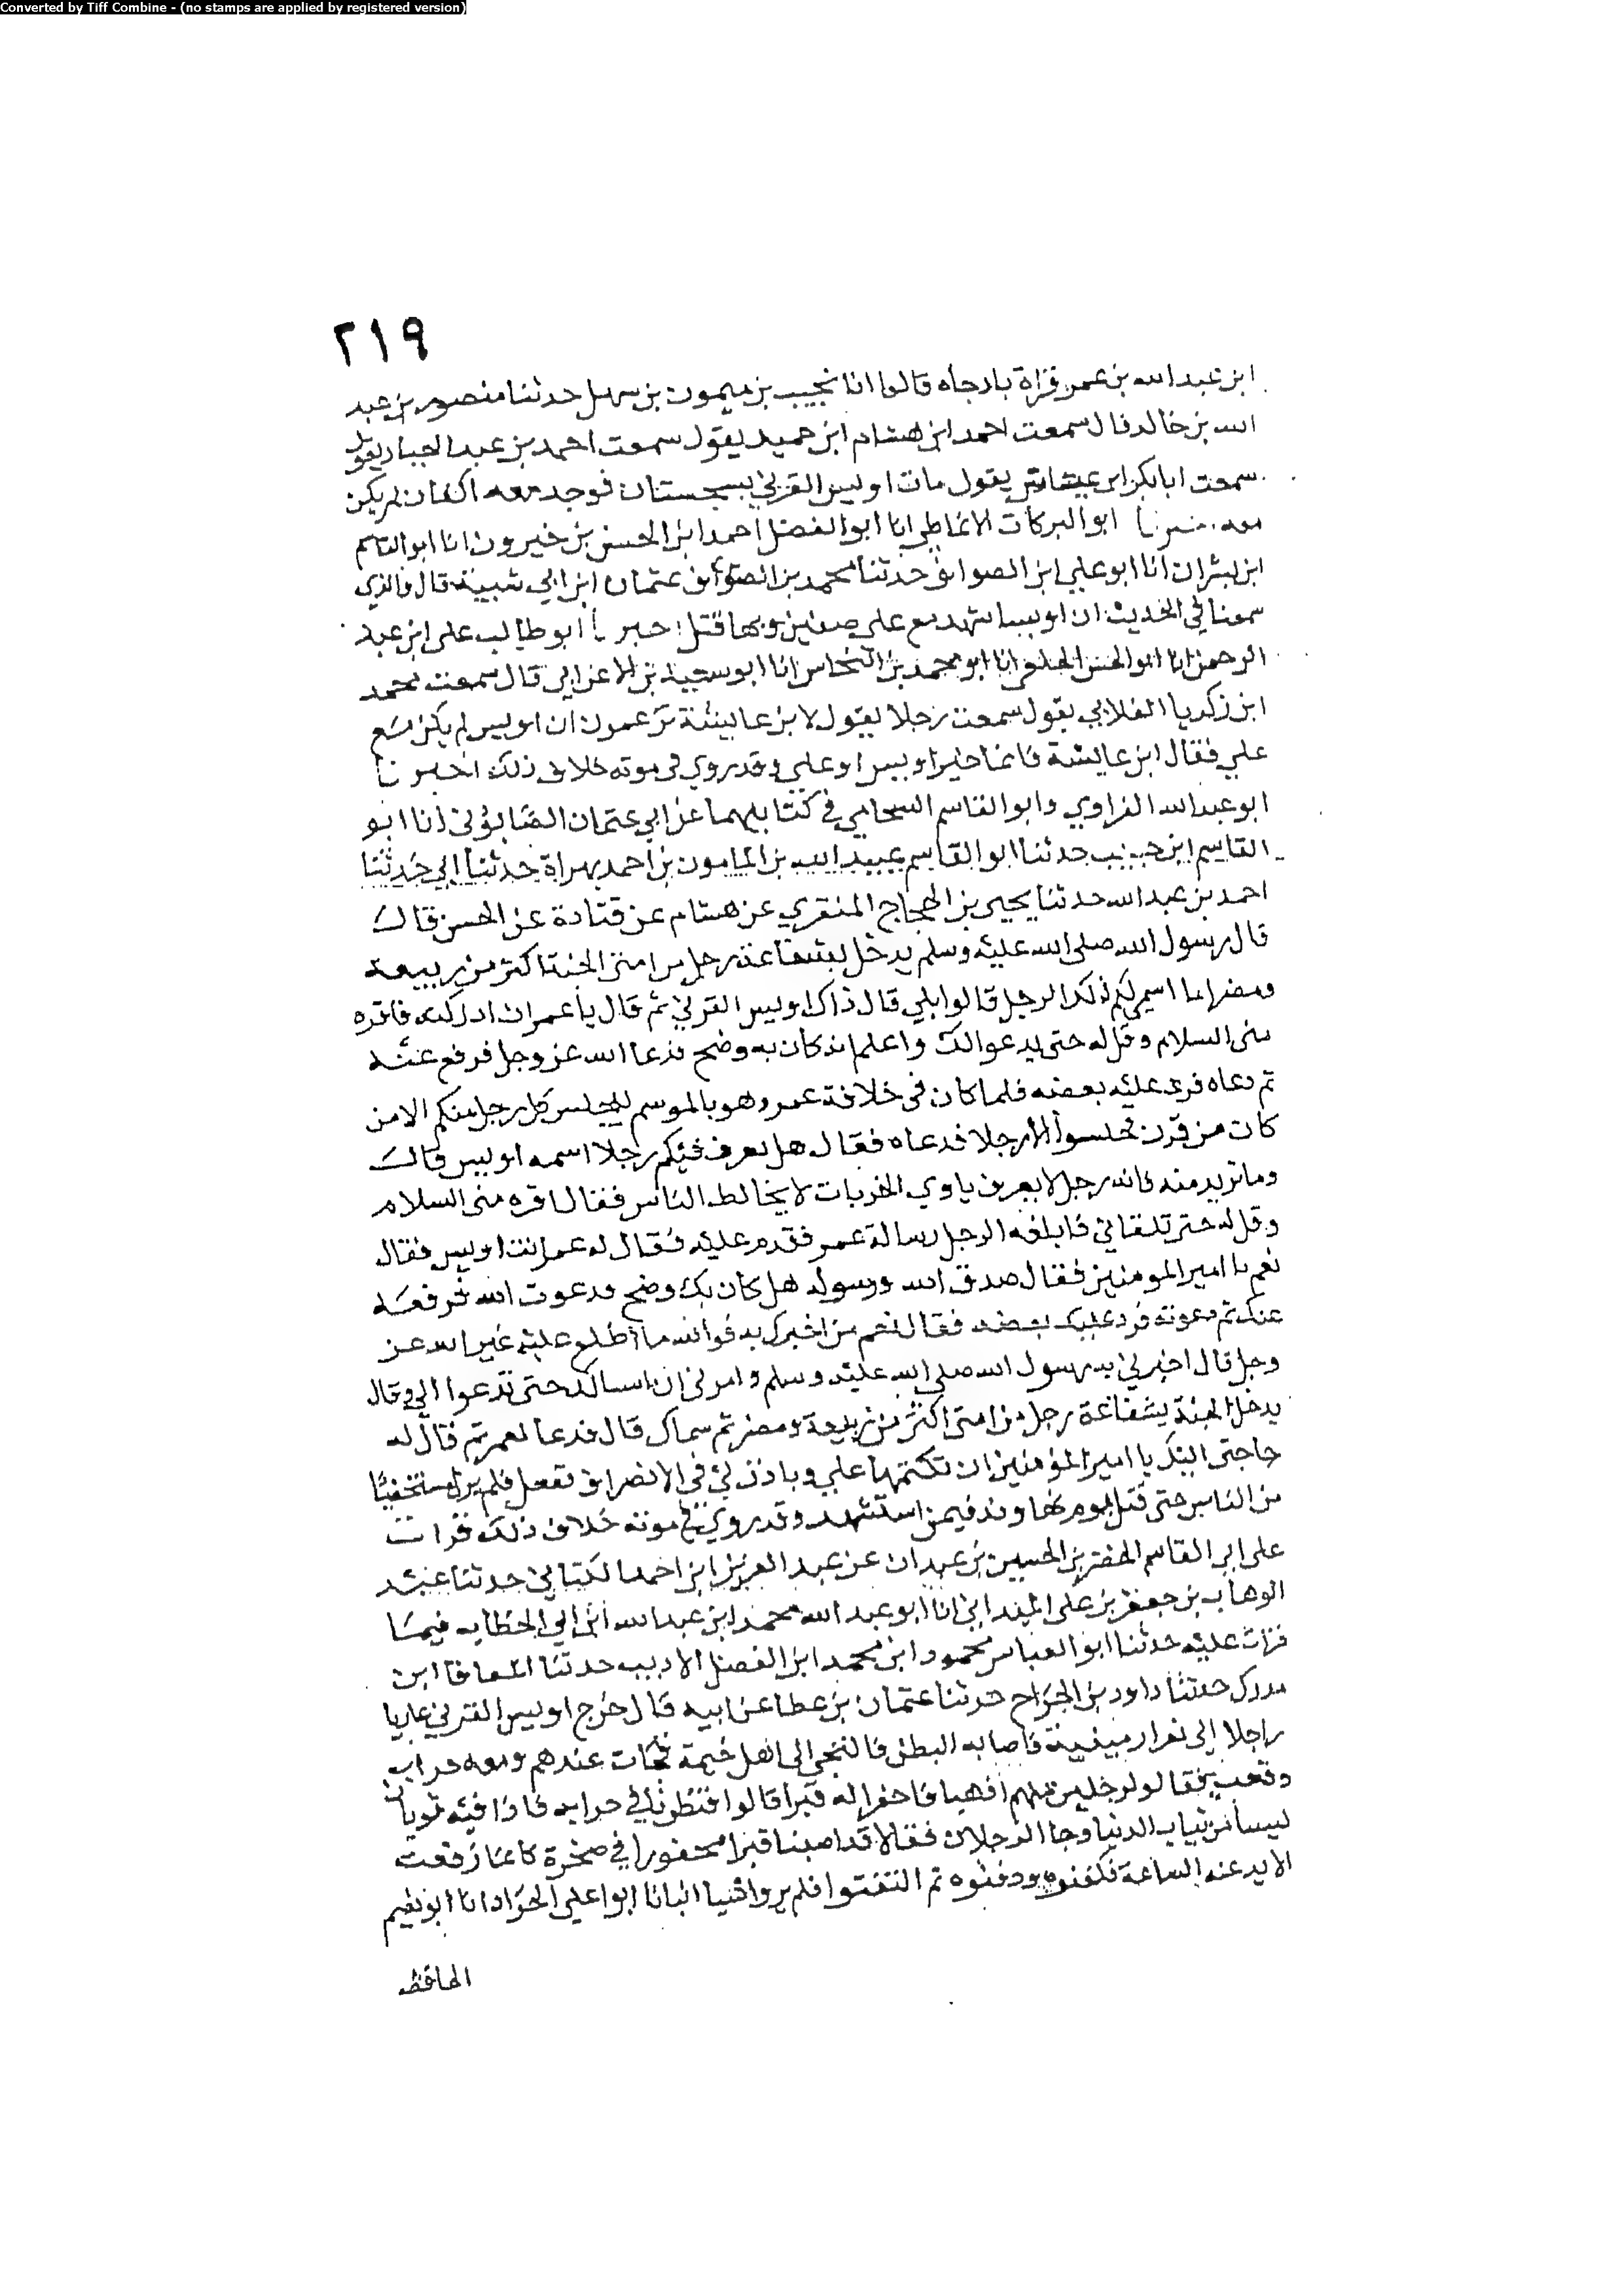 Converted by Tiff Combine - (no stamps are applied by registered version)
٢١٩
ابن عبد الله بن عمر قراة بارجاه قالوا انا نجيب بن ميمون بن سهل حدثنا منصور بن عبد
الله بن خالد قال سمعت احمد ابن هشام ابن حميد يقول سمعت احمد بن عبد الجبار يقول
سمعت ابا بكر ابن عياش يقول مات اويس القرني بسجستان فوجد معه اكفان لم يكن
معه ابو البركات الانماطي انا ابو الفضل احمد ابن الحسن بن خيرون انا ابو القاسم
ابن بشران انا ابو علي ابن الصواف حدثنا محمد بن عثمان ابن ابي شيبة قال فالذي
سمعنا في الحديث ان اويسا شهد مع علي صفين وبها قتل اخبرنا ابو طالب علي ابن عبد
الرحمن انا ابو الحسن الخلعي انا ابو محمد بن النحاس انا ابو سعيد بن الاعرابي قال سمعت محمد
ابن زكريا الغلابي يقول سمعت رجلا يقول لابن عايشة تزعمون ان اويس لم يكن مع
علي فقال ابن عايشة فانما خير اويس او علي وقد روي في موته خلاف ذلك اخبرنا
ابو عبد الله الفراوي وابو القاسم الشحامي في كتابيهما عن ابي عثمان الصابوني انا ابو
القاسم ابن حبيب حدثنا ابو القاسم عبيد الله بن المامون بن احمد بهراة حدثنا ابي حدثنا
احمد بن عبد الله حدثنا يحيى بن الحجاج المنقري عن هشام عن قتادة عن الحسن قال
قال رسول الله صلى الله عليه وسلم يدخل بشفاعة رجل من امتي الجنة اكثر من ربيعة
ومضر اما اسمي لكم ذلك الرجل قالوا بلى قال ذاك اويس القرني ثم قال يا عمر ان ادركته فاقره
منى السلام وقل له حتى يدعوا لك واعلم انه كان به وضح فدعا الله عز وجل فرفع عنه
ثم دعاه فرد عليه بعضه فلما كان في خلافة عمر وهو بالموسم ليجلس كل رجل منكم الا من
كان من قرن فجلسوا الا رجلا فدعاه فقال هل تعرف فيكم رجلا اسمه اويس قال
وما تريد منه فانه رجل لا يعرف ياوي الخربات لا يخالط الناس فقال اقره منى السلام
وقل له حتى تلقاني فابلغه الرجل رسالة عمر فقدم عليه فقال له عمر انت اويس فقال
نعم يا امير المومنين فقال صدق الله ورسوله هل كان بك وضح فدعوت الله فرفعه
عنك ثم دعوته فرد عليك بعضه فقال نعم من اخبرك به فوالله ما اطلع عليه غير الله عز
وجل قال اخبرني به رسول الله صلى الله عليه وسلم وامرني ان اسالك حتى تدعوا لي وقال
يدخل الجنة بشفاعة رجل من امتي اكثر من ربيعة ومضر ثم سماك قال فدعا لعمر ثم قال له
حاجتى اليك يا امير المؤمنين ان تكتمها علي وتاذن لي في الانصراف تفعل فلم يزل مستخفيًا
من الناس حتى قتل يوم نهاوند فيمن استشهد وقد روي في موته خلاف ذلك قرات
على ابي القاسم الخضر بن الحسين بن عبدان عن عبد العزيز ابن احمد الكتاني حدثنا عبد
الوهاب بن جعفر بن على الميداني انا ابو عبد الله محمد ابن عبد الله ابن ابي الخطاب فيما
قرات عليه حدثنا ابو العباس محمود ابن محمد ابن الفضل الاديب حدثنا المعافا ابن
مدرك حدثنا داود بن الجراح حدثنا عثمان بن عطا عن ابيه قال خرج اويس القرني غازيا
راجلا إلى ثغر ارمينية فاصابه البطن فالتجى الى اهل خيمة فمات عندهم ومعه جراب
وقعب فقالو لرجلين منهم اذهبا فاحفرا له قبرا قالوا فنظرنا في جرابه فاذا فيه ثوبان
ليسا من ثياب الدنيا وجا الرجلان فقالا قد اصبنا قبرا محفورا في صخرة كانما رفعت
الايد عنه الساعة فكفنوه ودفنوه ثم التفتوا فلم يروا شيا انبانا ابو علي الحداد انا ابو نعيم
الحافظ